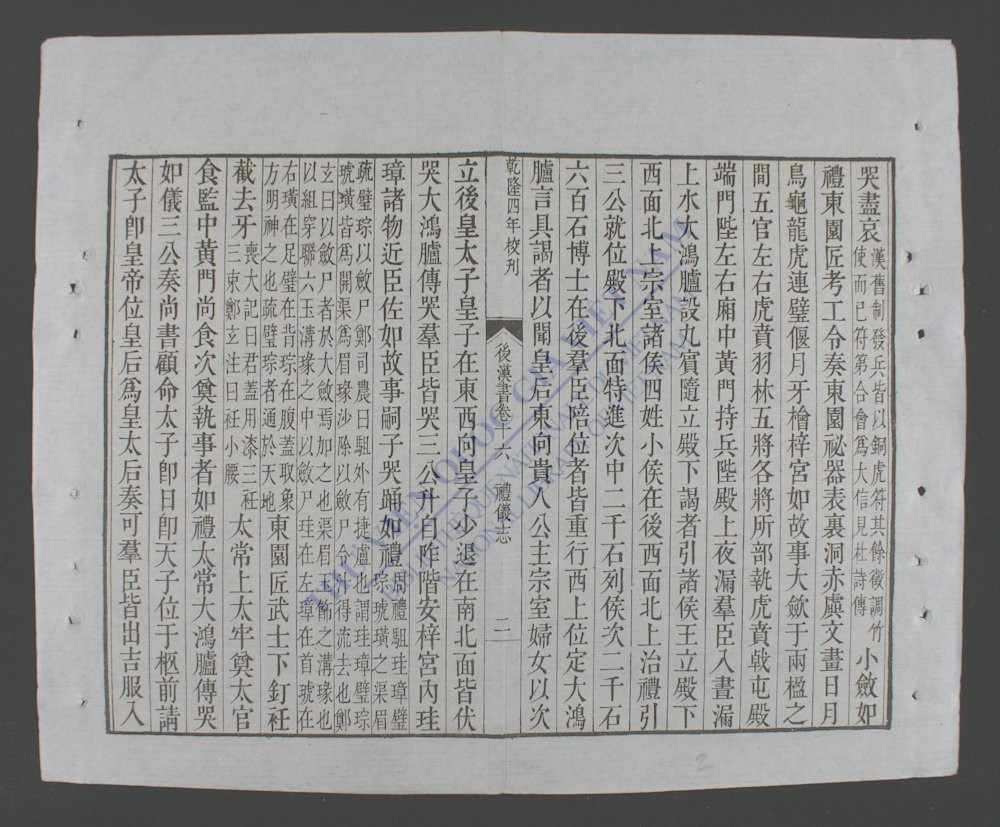 哭盡哀
漢舊制發兵皆以銅虎符其餘徵調竹
使而已符第合會爲大信見杜詩傳
小斂如
禮東園匠考工令奏東園祕器表裏洞赤虡文畫日月
鳥龜龍虎連璧偃月牙檜梓宮如故事大歛于兩楹之
間五官左右虎賁羽林五將各將所部執虎賁戟屯殿
端門陛左右廂中黃門持兵陛殿上夜漏羣臣入晝漏
上水大鴻臚設九賓隨立殿下謁者引諸侯王立殿下
西面北上宗室諸侯四姓小侯在後西面北上治禮引
三公就位殿下北面特進次中二千石列侯次二千石
六百石博士在後羣臣陪位者皆重行西上位定大鴻
臚言具謁者以聞皇后東向貴人公主宗室婦女以次
乾隆四年校刋
後漢書卷十六 禮儀志 二
立後皇太子皇子在東西向皇子少退在南北面皆伏
哭大鴻臚傳哭羣臣皆哭三公升自阼階安梓宮內珪
璋諸物近臣佐如故事嗣子哭踊如禮
周禮駔珪璋璧
琮琥璜之渠眉
疏璧琮以斂尸鄭司農曰駔外有捷盧也謂珪璋璧琮
琥璜皆爲開渠爲眉瑑沙除以斂尸令汁得流去也鄭
玄曰以斂尸者於大斂焉加之也渠眉玉飾之溝瑑也
以組穿聯六玉溝瑑之中以斂尸珪在左璋在首琥在
右璜在足璧在背琮在腹蓋取象
方明神之也疏璧琮者通於天地
東園匠武士下釘衽
截去牙
喪大記曰君蓋用漆三衽
三束鄭玄注曰衽小腰
太常上太牢奠太官
食監中黃門尚食次奠執事者如禮太常大鴻臚傳哭
如儀三公奏尚書顧命太子卽日卽天子位于柩前請
太子卽皇帝位皇后爲皇太后奏可羣臣皆出吉服入
THƯ VIỆN QUỐC GIA VIỆT NAM
BIBLIOTHÈQUE NATIONALE DU VIETNAM
NATIONAL LIBRARY OF VIETNAM
2